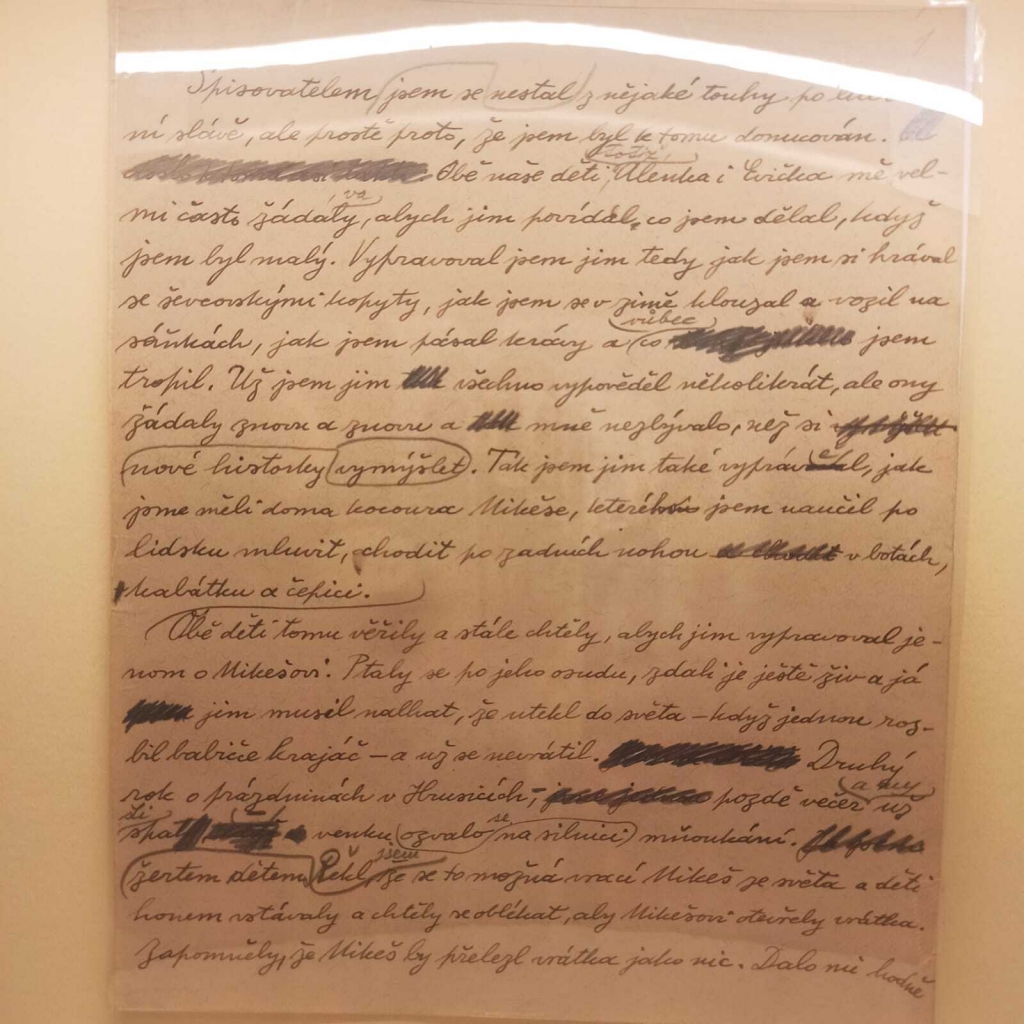 Spisovatelem jsem se nestal z nějaké touhy po
ní slávě, ale prostě proto, že jsem byl k tomu donucován.
totiž
Obě naše děti, Alenka i Evička mě vel-
va
mi často žádaly, abych jim povídal, co jsem dělal, když
jsem byl malý. Vypravoval jsem jim tedy jak jsem si hrával
se ševcovskými kopyty, jak jsem se v zimě klouzal a vozil na
vůbec
sáňkách, jak jsem pásal krávy a co jsem
tropil. Už jsem jim všechno vypověděl několikrát, ale ony
žádaly znovu a znovu a mně nezbývalo, než si
nové historky vymýšlet. Tak jsem jim také vyprávěl, jak
jsme měli doma kocoura Mikeše, kterého jsem naučil po
lidsku mluvit, chodit po zadních nohou v botách,
kabátku a čepici.
Obě děti tomu věřily a stále chtěly, abych jim vypravoval je-
nom o Mikešovi. Ptaly se po jeho osudu, zdali je ještě živ a já
jim musil nalhat, že utekl do světa – když jednou roz-
bil babičce krajáč – a už se nevrátil. Druhý
a my
rok o prázdninách v Hrusicích, pozdě večer už
šli se
spat venku ozvalo na silnici mňoukání.
jsem
žertem dětem Řekl, že se to možná vrací Mikeš ze světa a děti
honem vstávaly a chtěly se oblékat, aby Mikešovi otevřely vrátka.
Zapomněly, že Mikeš by přelezl vrátka jako nic. Dalo mi hodně